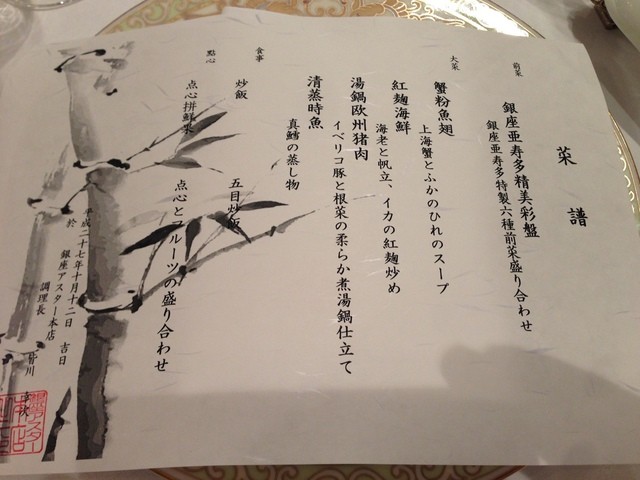 菜譜
前菜
銀座亜寿多精美彩盤
銀座亜寿多特製六種前菜盛り合わせ
大菜
蟹粉魚翅
上海蟹とふかのひれのスープ
紅麹海鮮
海老と帆立、イカの紅麹炒め
湯鍋欧州猪肉
イベリコ豚と根菜の柔らか煮湯鍋仕立て
清蒸時魚
真鱈の蒸し物
食事
炒飯
五目炒飯
點心
点心拼鮮果
点心とフルーツの盛り合わせ
平成二十七年十月十二日 吉日
於 銀座アスター本店
調理長